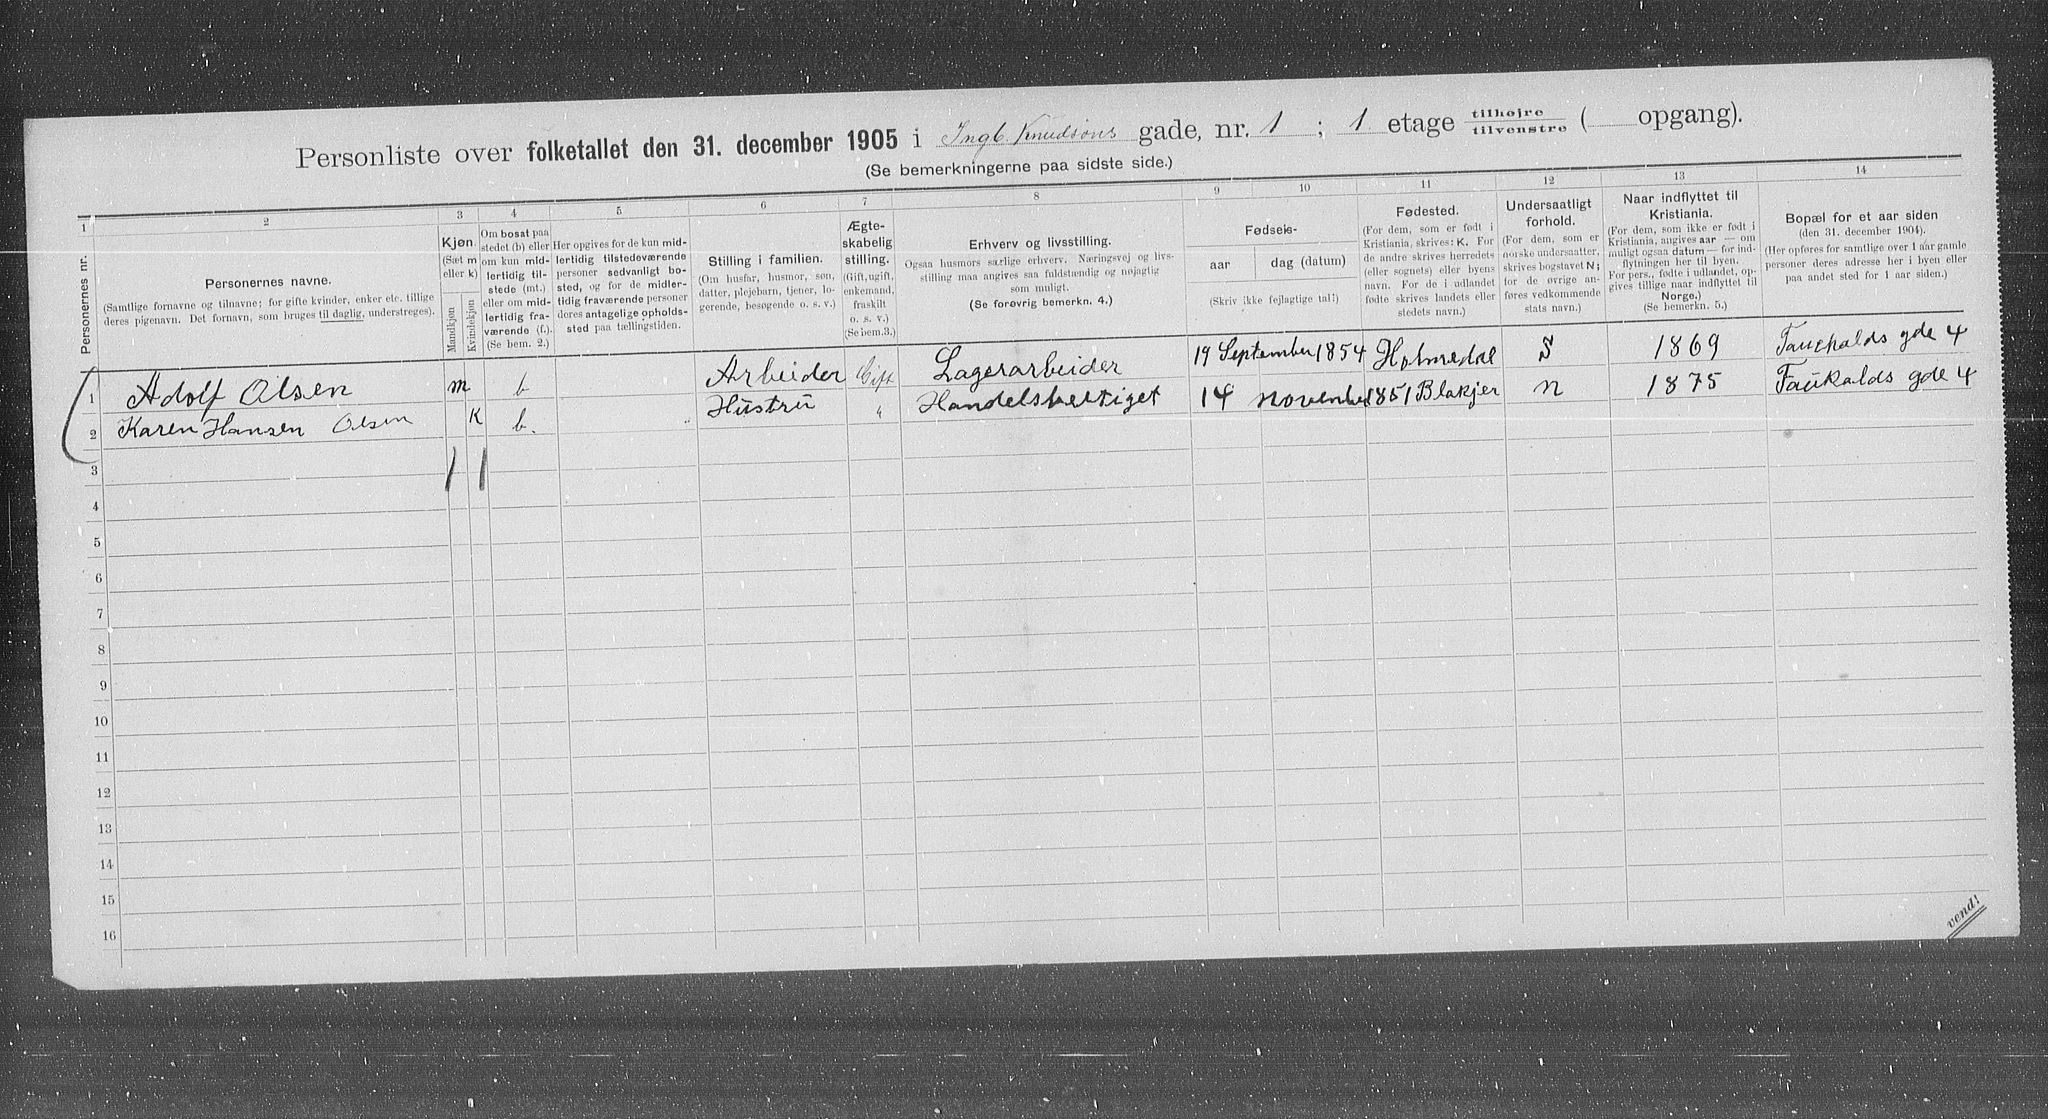 Personliste over folketallet den 31. december 1905 i Ingb. Knudsöns gade, nr. 1 ; 1 etage tilhøjre / tilvenstre ( opgang).
(Se bemerkningerne paa sidste side.)
1 2 3 4 5 6 7 8 9 10 11 12 13 14
Personernes nr.
Personernes navne.
(Samtlige fornavne og tilnavne; for gifte kvinder, enker etc. tillige
deres pigenavn. Det fornavn, som bruges til daglig, understreges).
Kjøn.
(Sæt m
eller k)
Mandkjøn
Kvindekjøn
Om bosat paa
stedet (b) eller
om kun mid-
lertidig til-
stede (mt.)
eller om mid-
lertidig fra-
værende (f.).
(Se bem. 2.)
Her opgives for de kun mid-
lertidig tilstedeværende
personer sedvanlig bo-
sted, og for de midler-
tidig fraværende personer
deres antagelige opholds-
sted paa tællingstiden.
Stilling i familien.
(Om husfar, husmor, søn,
datter, plejebarn, tjener, lo-
gerende, besøgende o. s. v.)
Ægte-
skabelig
stilling.
(Gift, ugift,
enkemand,
fraskilt
o. s. v.)
(Se bem. 3.)
Erhverv og livsstilling.
Ogsaa husmors særlige erhverv. Næringsvej og livs-
stilling maa angives saa fuldstændig og nøjagtig
som muligt.
(Se forøvrig bemerkn. 4.)
Fødsels-
aar dag (datum)
(Skriv ikke fejlagtige tal!)
Fødested.
(For dem, som er født i
Kristiania, skrives: K. For
de andre skrives herredets
(eller sognets) eller byens
navn. For de i udlandet
fødte skrives landets eller
stedets navn.)
Undersaatligt
forhold.
(For dem, som er
norske undersaatter,
skrives bogstavet N;
for de øvrige an-
føres vedkommende
stats navn.)
Naar indflyttet til
Kristiania.
(For dem, som ikke er født i
Kristiania, angives aar — om
muligt ogsaa datum — for ind-
flytningen her til byen.
For pers., fødte i udlandet, op-
gives tillige naar indflyttet til
Norge.)
(Se bemerkn. 5.)
Bopæl for et aar siden
(den 31. december 1904).
(Her opføres for samtlige over 1 aar gamle
personer deres adresse her i byen eller
paa andet sted for 1 aar siden.)
1 Adolf Olsen m b Arbeider Gift Lagerarbeider 19 September 1854 Holmedal S 1869 Fauchalds gde 4
2 Karen Hansen Olsen K b. Hustru " 14 November 1851 Blakjer n 1875 Faukalds gde 4
3 1 1
4
5
6
7
8
9
10
11
12
13
14
15
16
vend!